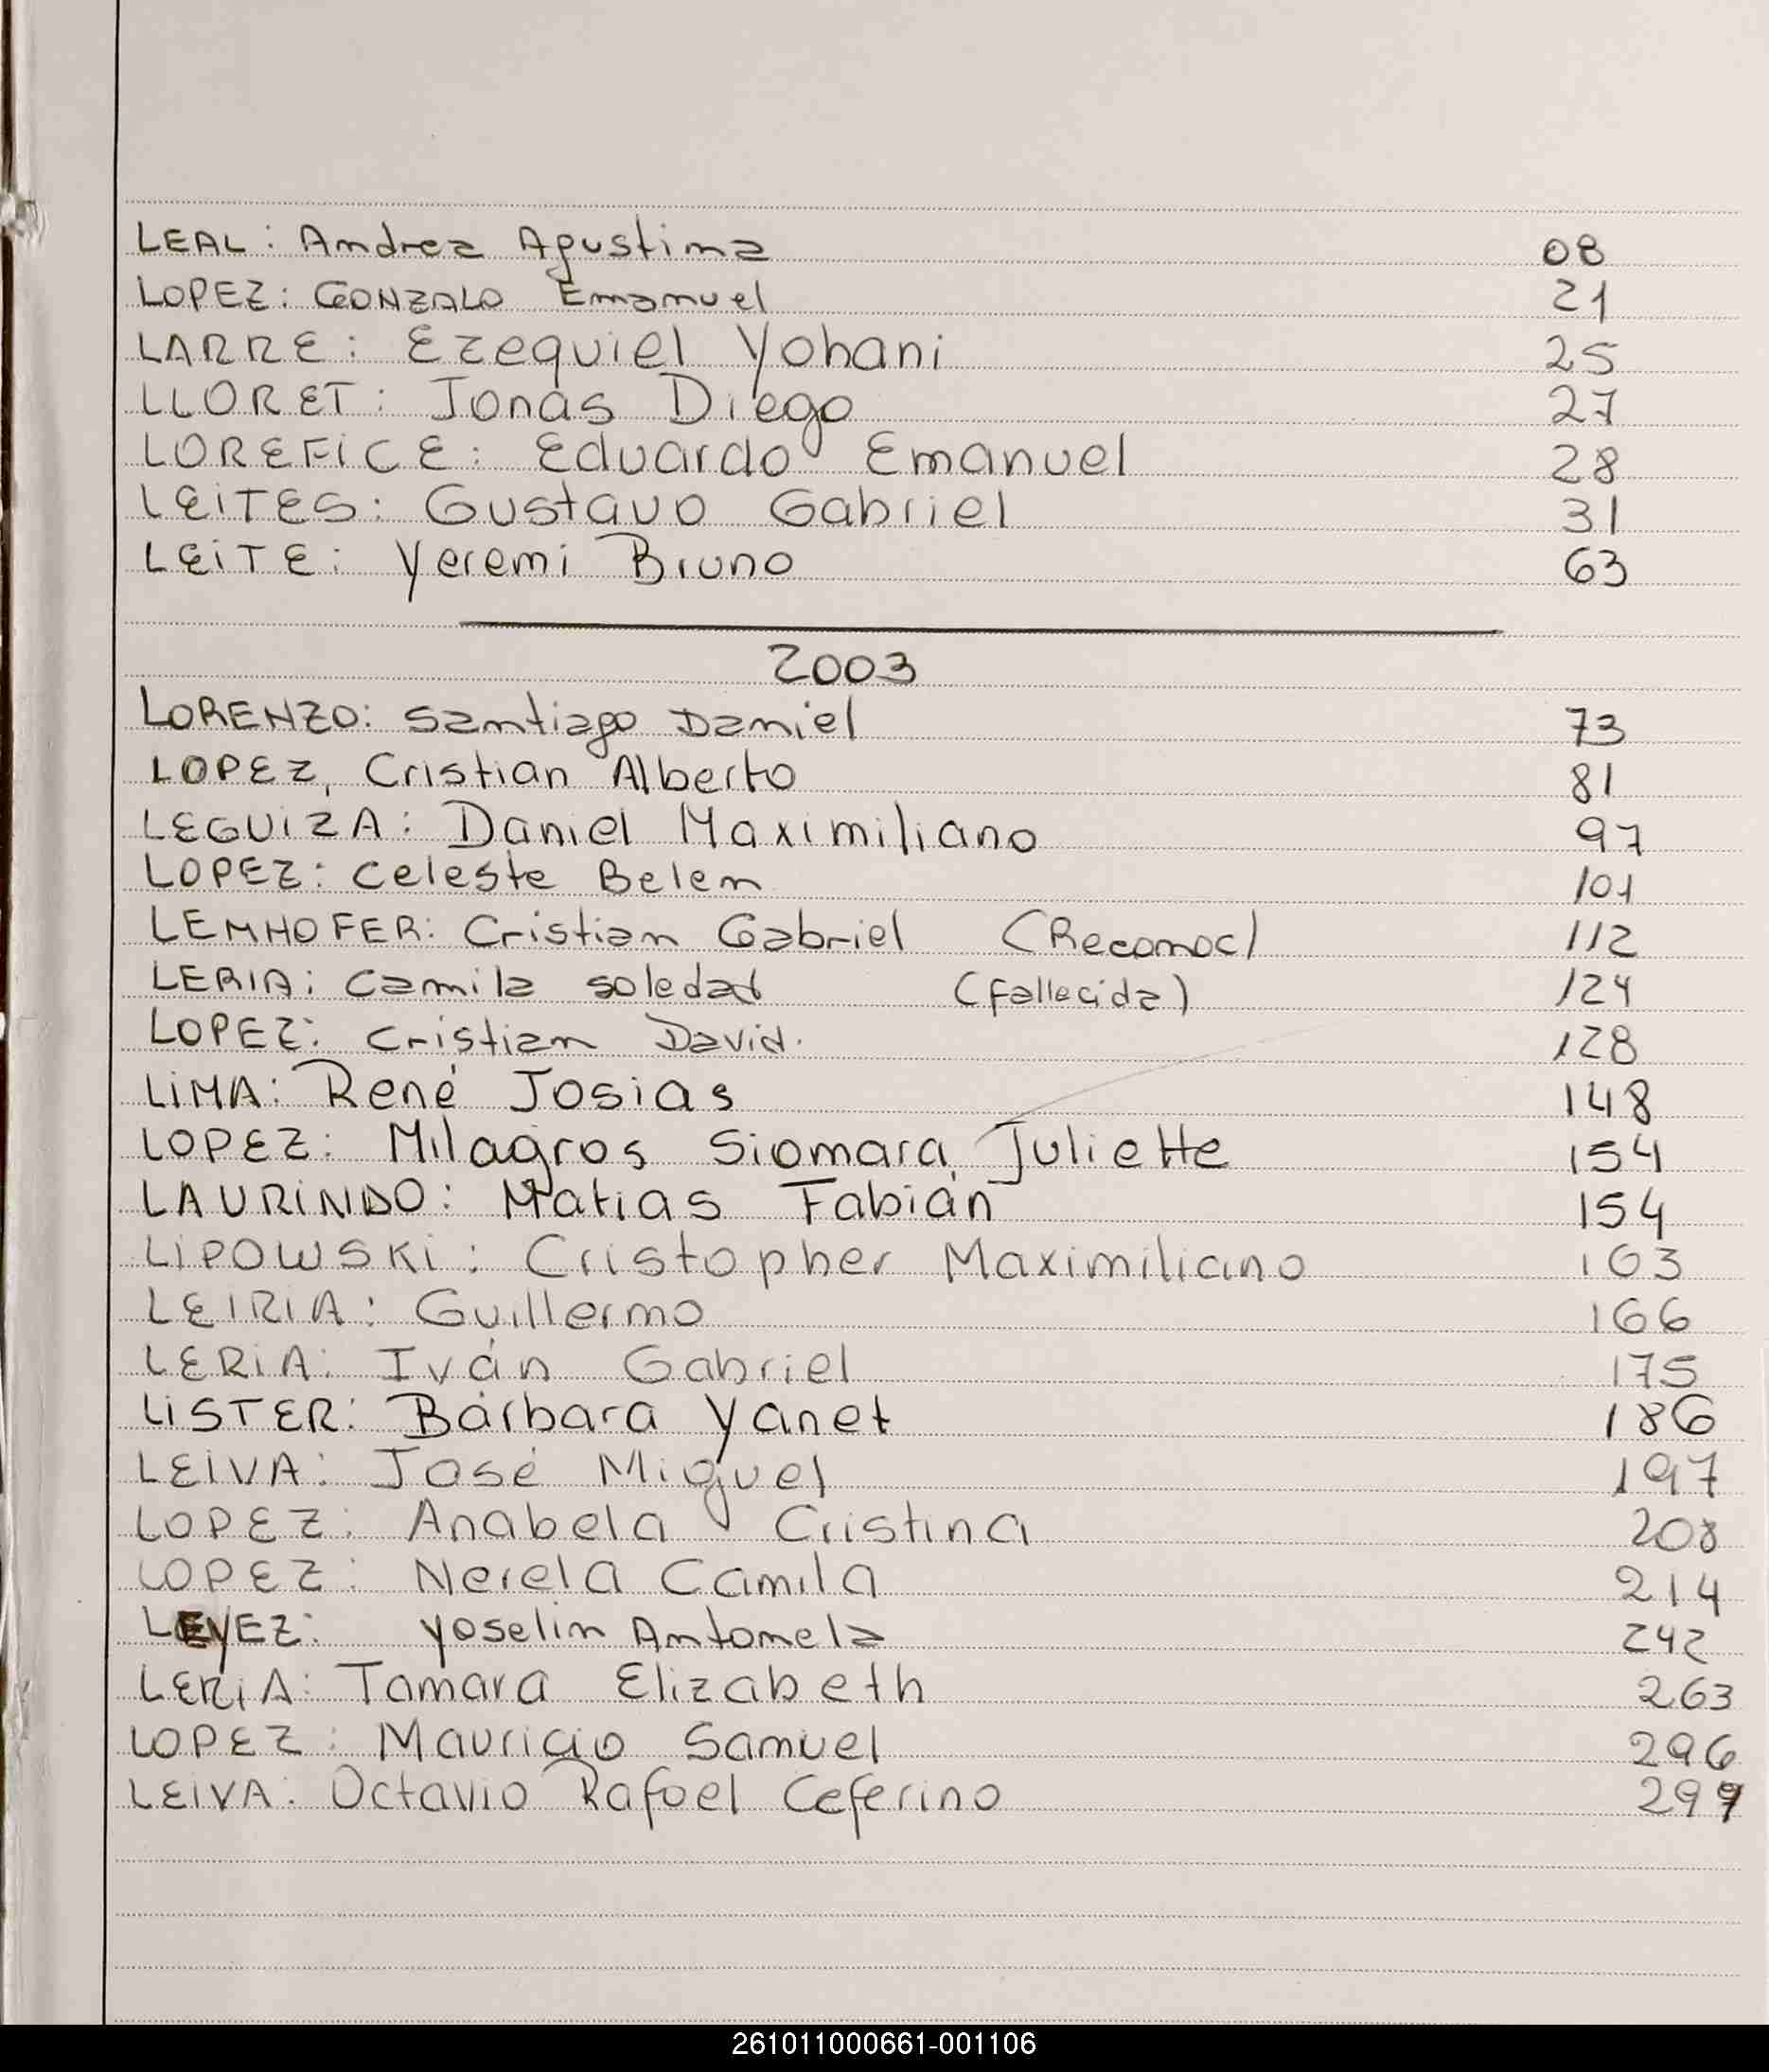 LEAL: Andrea Agustina 08
LOPEZ: GONZALO Emanuel 21
LARRE: Ezequiel Yohani 25
LLORET: Jonás Diego 27
LOREFICE: Eduardo Emanuel 28
LEITES: Gustavo Gabriel 31
LEITE: Yeremi Bruno 63
2003
LORENZO: Santiago Daniel 73
LOPEZ, Cristian Alberto 81
LEGUIZA: Daniel Maximiliano 97
LOPEZ: Celeste Belen 101
LEMHOFER: Cristian Gabriel (Reconoc) 112
LERIA: Camila Soledad (Fallecida) 124
LOPEZ: Cristian David. 128
LIMA: René Josias 148
LOPEZ: Milagros Siomara Juliette 154
LAURINDO: Matias Fabián 154
LIPOWSKI: Cristopher Maximiliano 163
LEIRIA: Guillermo 166
LERIA: Iván Gabriel 175
LISTER: Bárbara Yanet 186
LEIVA: José Miguel 197
LOPEZ: Anabela Cristina 208
LOPEZ: Nerela Camila 214
LEYEZ: Yoselin Antonela 242
LERIA: Tamara Elizabeth 263
LOPEZ: Mauricio Samuel 296
LEIVA: Octavio Rafael Ceferino 299
261011000661-001106